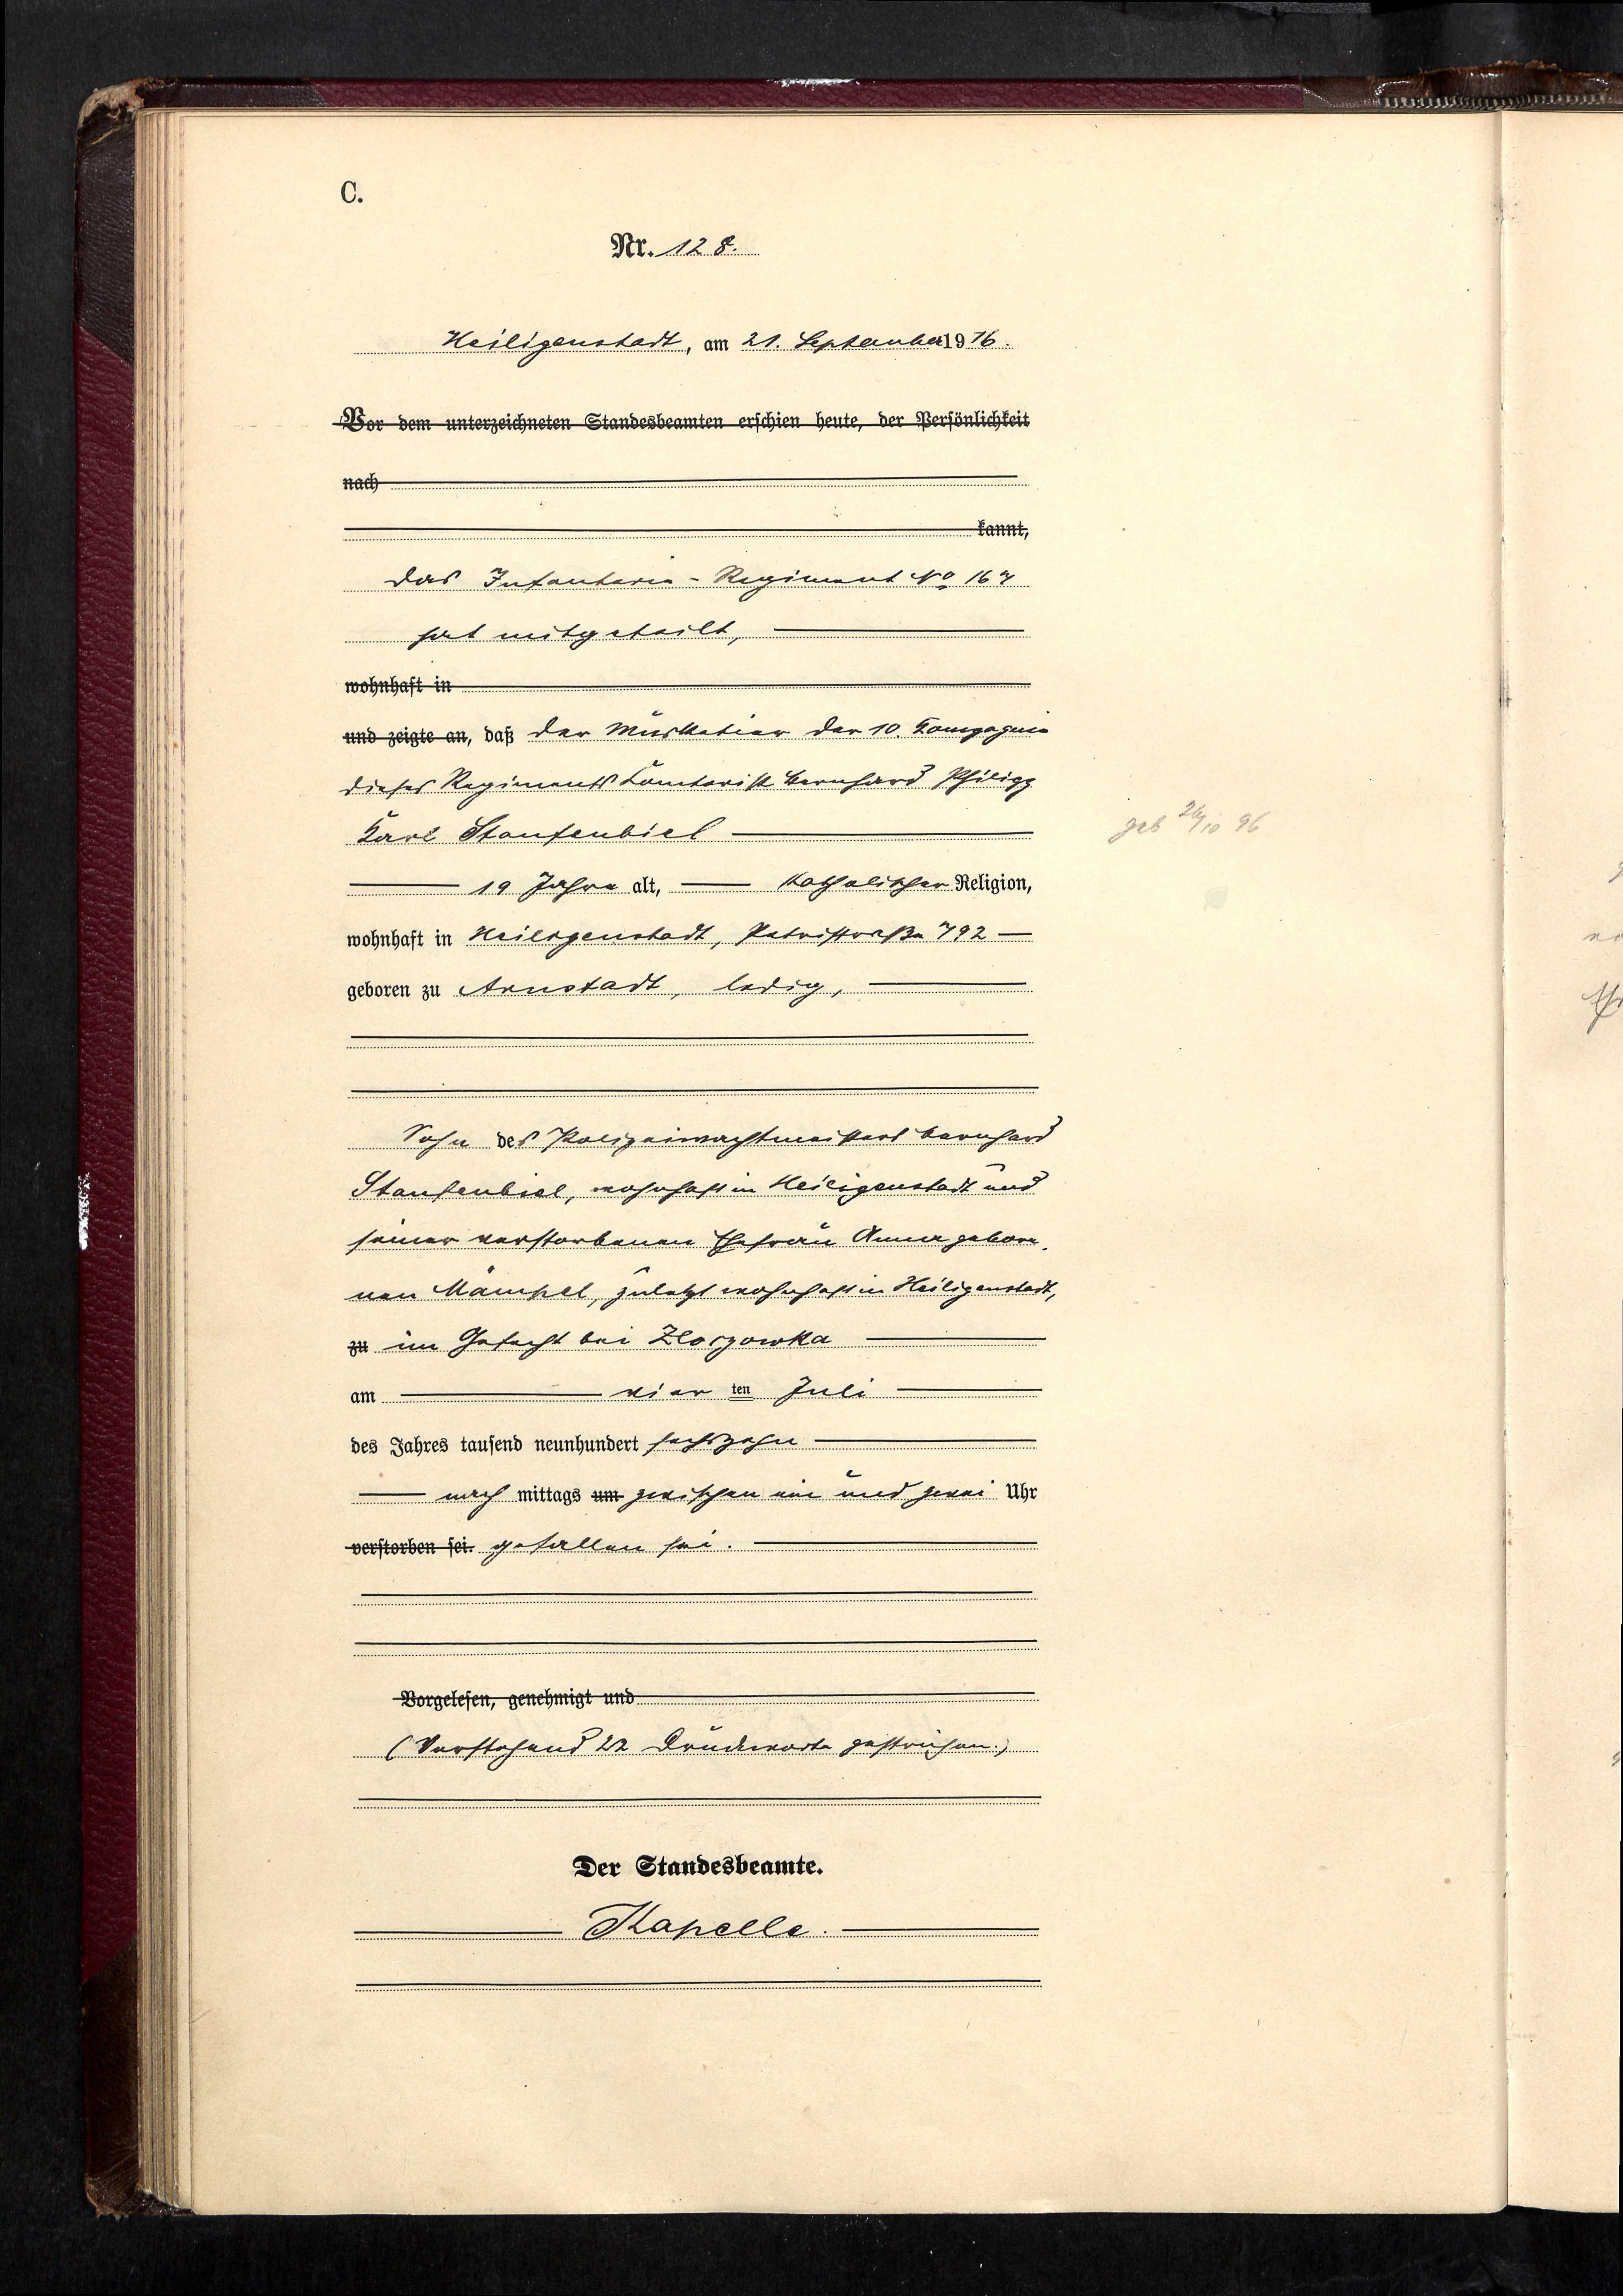 C.
Nr. 128.
Heiligenstadt, am 21. September 1916.
Vor dem unterzeichneten Standesbeamten erschien heute, der Persönlichkeit
nach
kannt,
das Infanterie-Regiment No 167
hat mitgeteilt,
wohnhaft in
und zeigte an, daß der Musketier der 10. Kompagnie
dieses Regiments Kontorist Bernhard Philipp
Karl Staufenbiel
geb 26/10 96
19 Jahre alt, katholischer Religion,
wohnhaft in Heiligenstadt, Petristraße 792
geboren zu Arnstadt, ledig,
Sohn des Polizeiwachtmeisters Bernhard
Staufenbiel, wohnhaft in Heiligenstadt und
seiner verstorbenen Ehefrau Anna gebore-
nen Mämpel, zuletzt wohnhaft in Heiligenstadt,
zu im Gefecht bei Zloczowka
am vier ten Juli
des Jahres tausend neunhundert sechszehn
nach mittags um zwischen ein und zwei Uhr
verstorben sei. gefallen sei.
Vorgelesen, genehmigt und
(Vorstehend 22 Druckworte gestrichen.)
Der Standesbeamte.
Kapelle.